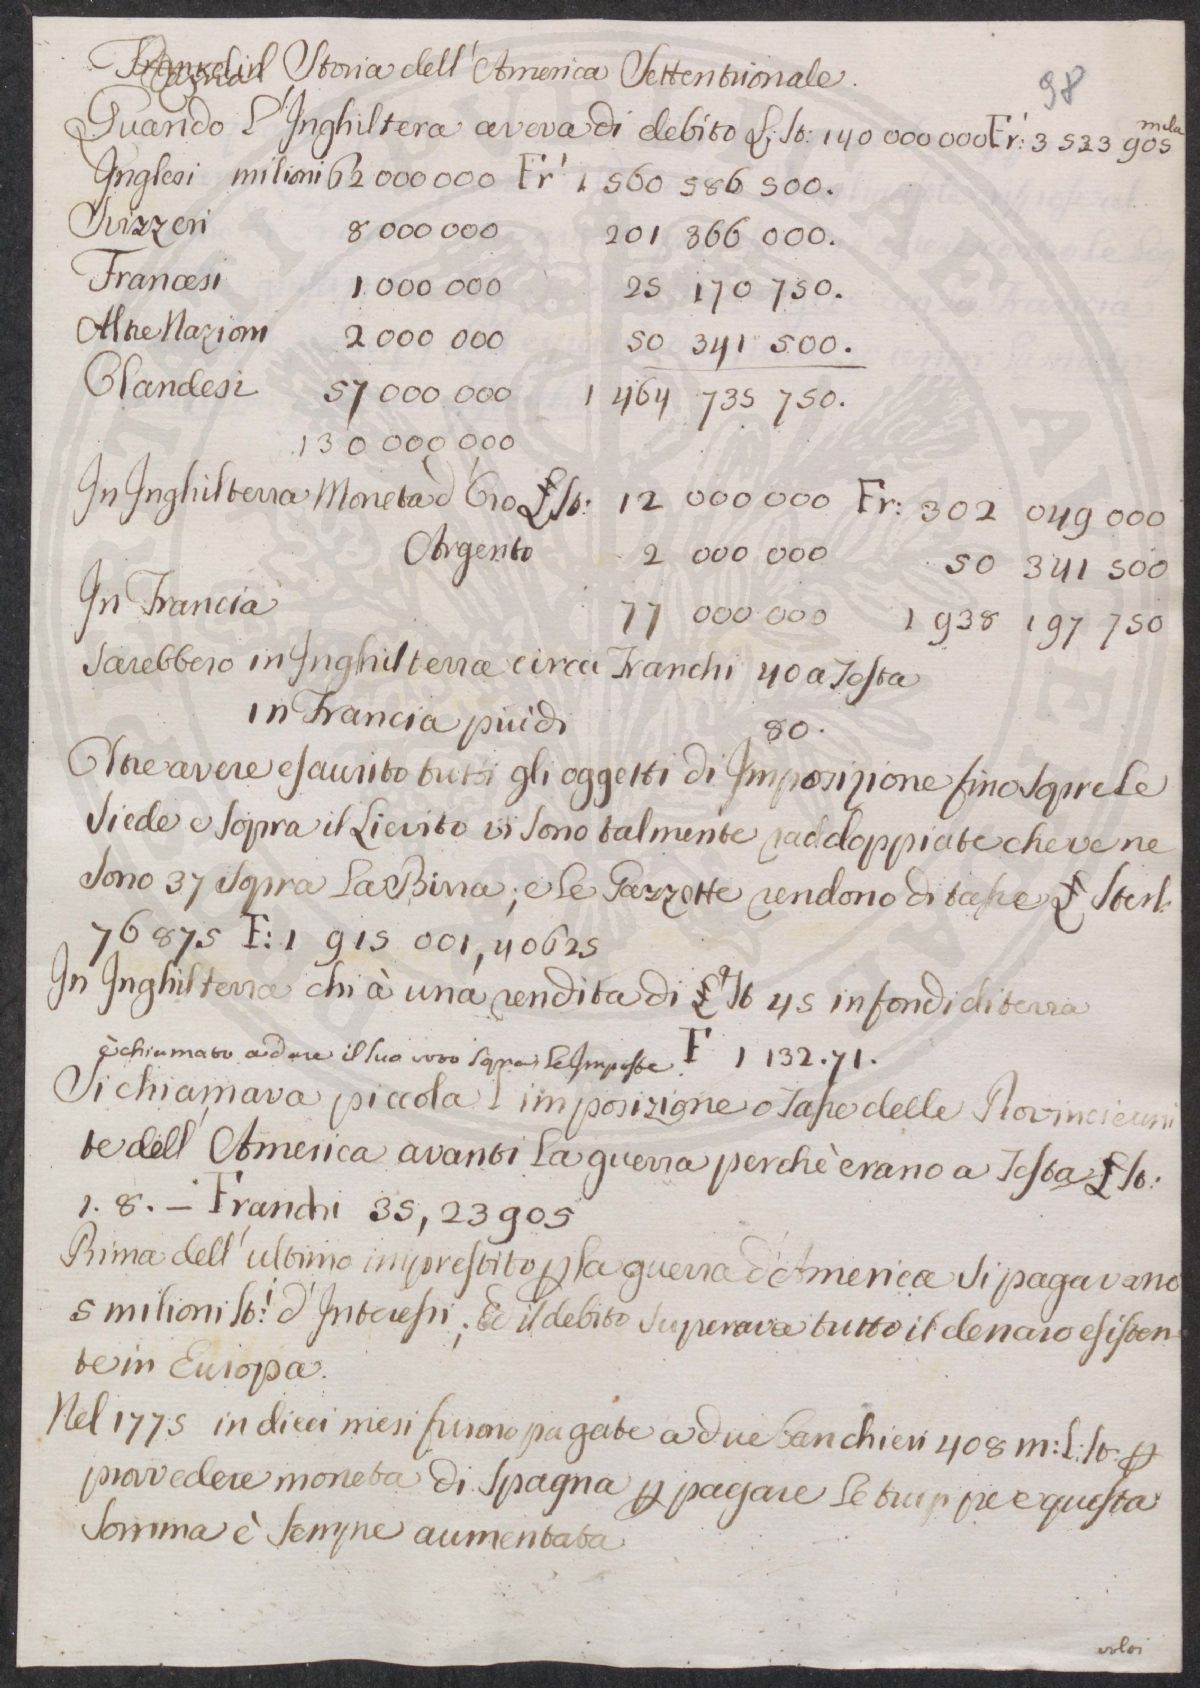 Franklin Storia dell' America Settentrionale.
98
Quando L' Inghiltera aveva di debito L: St: 140 000 000 Fr: 3 523 905 mila
Inglesi milioni 62 000 000 Fr' 1 560 586 500.
Svizzeri 8 000 000 201 366 000.
Francesi 1 000 000 25 170 750.
Altre Nazioni 2 000 000 50 341 500.
Olandesi 57 000 000 1 464 735 750.
130 000 000
In Inghilterra Moneta d' Oro £ St: 12 000 000 Fr: 302 049 000
Argento 2 000 000 50 341 500
In Francia 77 000 000 1 938 197 750
Sarebbero in Inghilterra circa Franchi 40 a Testa
in Francia più di 80.
Oltre avere esaurito tutti gli oggetti di Imposizione fino sopra le
Siede e sopra il Lievito vi sono talmente raddoppiate che ve ne
sono 37 sopra La Birra; e Le Gazzette rendono di tasse £ Sterl:
76 875 F: 1 915 001,40625
In Inghilterra chi à una rendita di £ St 45 in fondi di terra
è chiamato a dare il suo voto sopra Le Imposte F 1 132.71.
Si chiamava piccola l' imposizione o Tasse delle Provincie uni
te dell' America avanti La guerra perchè erano a Testa £ St:
1. 8. – Franchi 35,23905
Prima dell' ultimo imprestito p la guerra d' America si pagavano
5 milioni St: d' Interessi; Ed il debito superava tutto il denaro esisten
te in Europa.
Nel 1775 in dieci mesi furono pagate a due banchieri 408 m: L: St: p
provvedere moneta di Spagna p pagare Le truppe e questa
somma è sempre aumentata